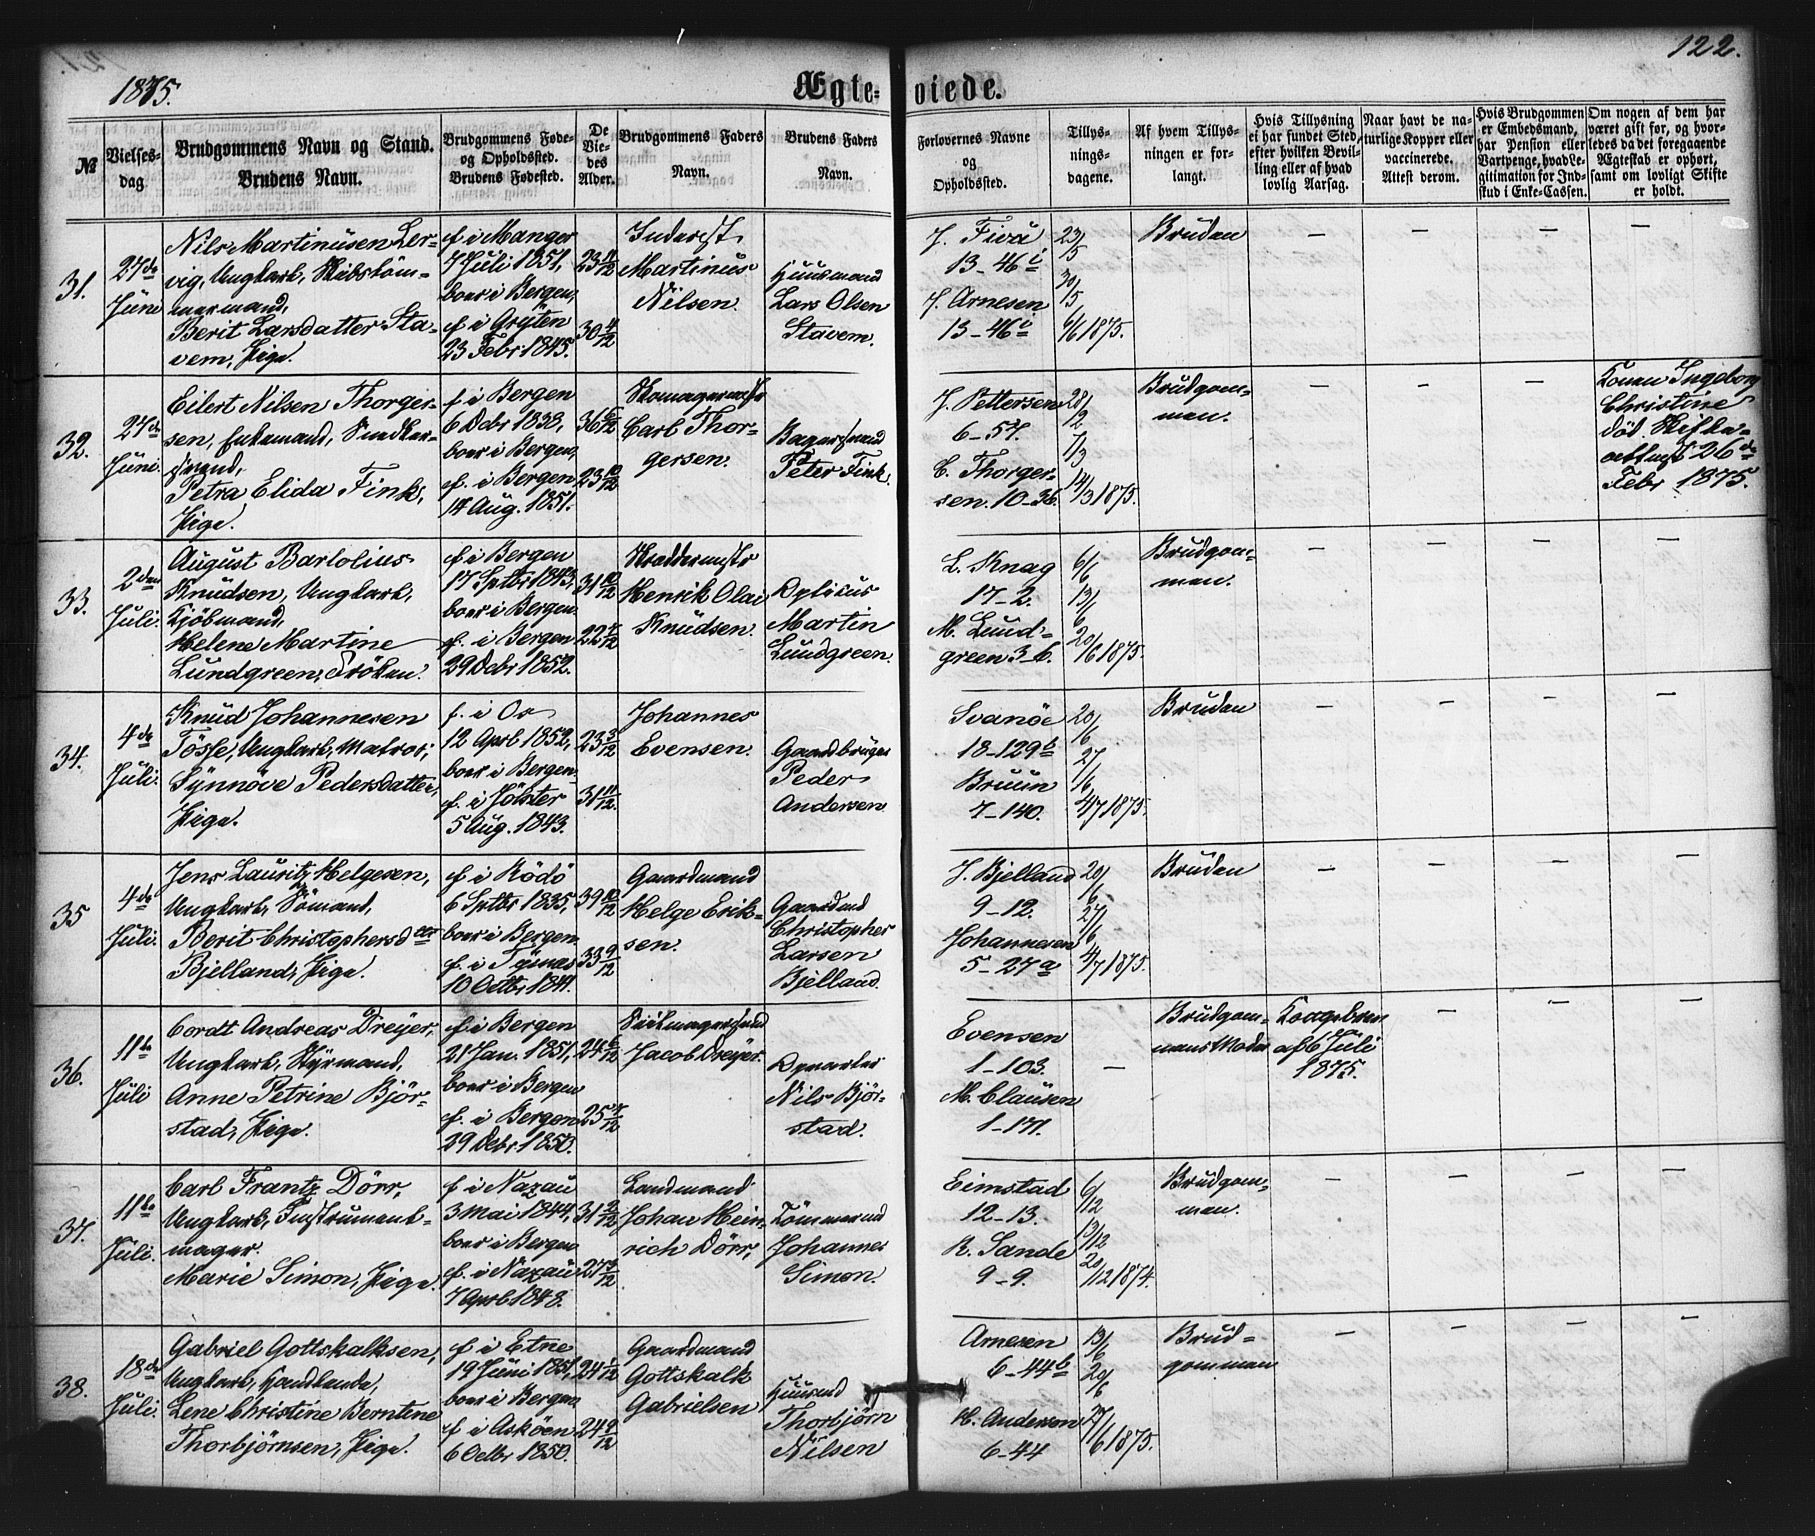 122.
1875.
Ægte-viede.
№
Vielses-dag.
Brudgommens Navn og Stand.
Brudens Navn.
Brudgommens Føde- og Opholdssted.
Brudens Fødested.
De Viedes Alder.
Brudgommens Faders Navn.
Brudens Faders Navn.
Forlovernes Navne og Opholdssted.
Tillysningsdagene.
Af hvem Tillysningen er forlangt.
Hvis Tillysning ei har fundet Sted, efter hvilken Bevilling eller af hvad lovlig Aarsag.
Naar havt de naturlige Kopper eller vaccinerede. Attest derom.
Hvis Brudgommen er Embedsmand, har Pension eller Vartpenge, hvad Legitimation for Indskud i Enke-Cassen.
Om nogen af dem har været gift før, og hvorledes da det foregaaende Ægteskab er ophørt, samt om lovligt Skifte er holdt.
31.
27de Juni
Nils Martinusen Ler-
vig, Ungkarl, Skibstöm-
mermand,
Berit Larsdatter Sta-
vem, Pige.
f i Manger
7 Juli 1851,
boer i Bergen,
f i Gryten
23 Febr 1845.
23 11/12
30 4/12
Inderst
Martinus
Nilsen.
Huusmand
Lars Olsen
Stavem.
J. Fivä
13-46 c
J. Arnesen
13-46 c
23/5
30/5
6/6 1875.
Bruden
— — — —
32.
27de Juni.
Eilert Nilsen Thorger-
sen, Enkemand,
Petra Elida Fink,
Pige.
f i Bergen
6 Debr 1838,
boer i Bergen,
f. i Bergen
14 Aug. 1851.
36 6/12
23 10/12
Skomagermestr
Carl Thor-
gersen.
Bagersvend
Peter Fink.
J. Pettersen
6-57.
C. Thorger-
sen. 10-36.
28/2
7/3
14/3 1875.
Brudgom-
men.
— — —
Konen Ingeborg
Christine
död. Skifte-
attest 26de
Febr 1875.
33.
2den Juli.
August Bartolius
Knudsen, Ungkarl,
Kjöbmand,
Helene Martine
Lundgreen, Fröken.
f i Bergen
17 Septbr 1843,
boer i Bergen
f. i Bergen
29 Debr 1852.
31 10/12
22 7/12
Skreddermestr
Henrik Olai
Knudsen.
Opticus
Martin
Lundgreen.
L. Knag
17-2.
M. Lund-
green 3-6.
6/6
13/6
20/6 1875.
Brudgom-
men.
— — — —
34.
4de Juli.
Knud Johannesen
Tösse, Ungkarl, Matros,
Synnöve Pedersdatter,
Pige.
f. i Os
12 April 1852,
boer i Bergen
f. i Jölster
5 Aug. 1843.
23 3/12
31 11/12.
Johannes
Evensen.
Gaardbruger
Peder
Andersen
Svanöe
18-129 b
Bruun
7-140.
20/6
27/6
4/7 1875.
Bruden
— — — —
35
4de Juli.
Jens Lauritz Helgesen,
Ungkarl, Sömand,
Berit Christophersdatter
Bjelland, Pige.
f i Rödö
6 Septbr 1835,
boer i Bergen
f. i Tysnes
10 Octbr 1841.
39 10/12
33 9/12
Gaardmand
Helge Erik-
sen.
Gaardmd
Christopher
Larsen
Bjelland.
J. Bjelland
9-12.
Johannesen
5-27 a
20/6
27/6
4/7 1875.
Bruden
— — — —
36.
11te Juli
Cordt Andreas Dreyer,
Ungkarl, Styrmand,
Anne Petrine Björ-
stad, Pige.
f i Bergen
21 Jan. 1851,
boer i Bergen
f. i Bergen
29 Debr 1850.
24 6/12
25 7/12
Seilmagersvend
Jacob Dreyer.
Nils Björ-
stad.
Evensen
1-103.
M. Clausen
1-171.
—
Brudgom-
mens Moder
Kongebrev
af 6 Juli
1875.
— — —
37.
11te Juli.
Carl Frantz Dörr,
Ungkarl, Instrument-
mager.
Marie Simon, Pige.
f i Nazau
3 Mai 1844,
boer i Bergen
f. i Nazau
7 April 1848.
31 2/12
27 3/12
Landmand
Johan Hein-
rich Dörr,
Tömmermd
Johannes
Simon.
Eimstad
12-13.
R. Sande
9-9.
6/12
13/12
20/12 1874.
Brudgom-
men.
— — — —
38.
18de Juli.
Gabriel Gottskalksen,
Ungkarl, Handlende,
Lene Christine Berntine
Thorbjörnsen, Pige.
f i Etne
19 Juni 1851,
boer i Bergen
f i Asköen
6 Octbr 1850.
24 1/12
24 9/12
Gaardmand
Gottskalk
Gabrielsen
Huusmd
Thorbjörn
Nilsen
Arnesen
6-44 b
H. Andersen
6-44
13/6
20/6
27/6 1875.
Brud-
gommen
— — — —